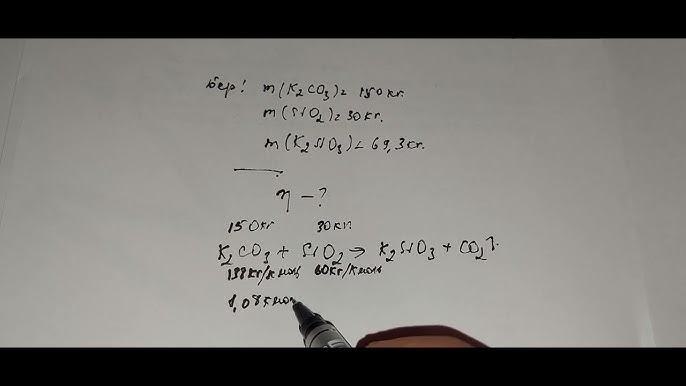 Бер! m(K₂CO₃)=150кг.
m(SiO₂)=30кг.
m(K₂SiO₃)=69,3кг.
η-?
150кг 30кг.
K₂CO₃+SiO₂→K₂SiO₃+CO₂↑.
138кг/кмоль 60кг/кмоль
1,08кмоль